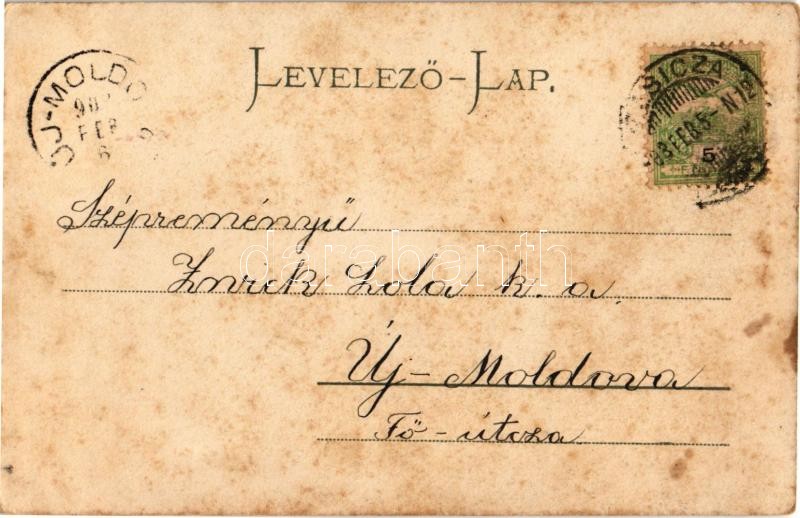 LEVELEZŐ-LAP.
ÚJ-MOLDO
FEB
6
SICZA
5
Szépreményű
Zwick Lola k. a.
Új-Moldova
Fő-útcza
darabanth